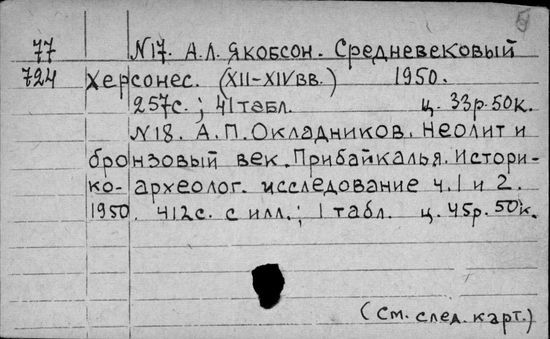 77 N17. А.Л. Якобсон. Средневековый
724 Херсонес. (XII-XIVвв.) 1950.
257с.; 41табл. ц. 33р.50к.
N18. А.П.Окладников. Неолит и
бронзовый век.Прибайкалья.Истори-
ко-археолог. исследование ч.1 и 2.
1950. 412с. с илл.; 1 табл. ц. 45р.50к.
(см. след. карт.)